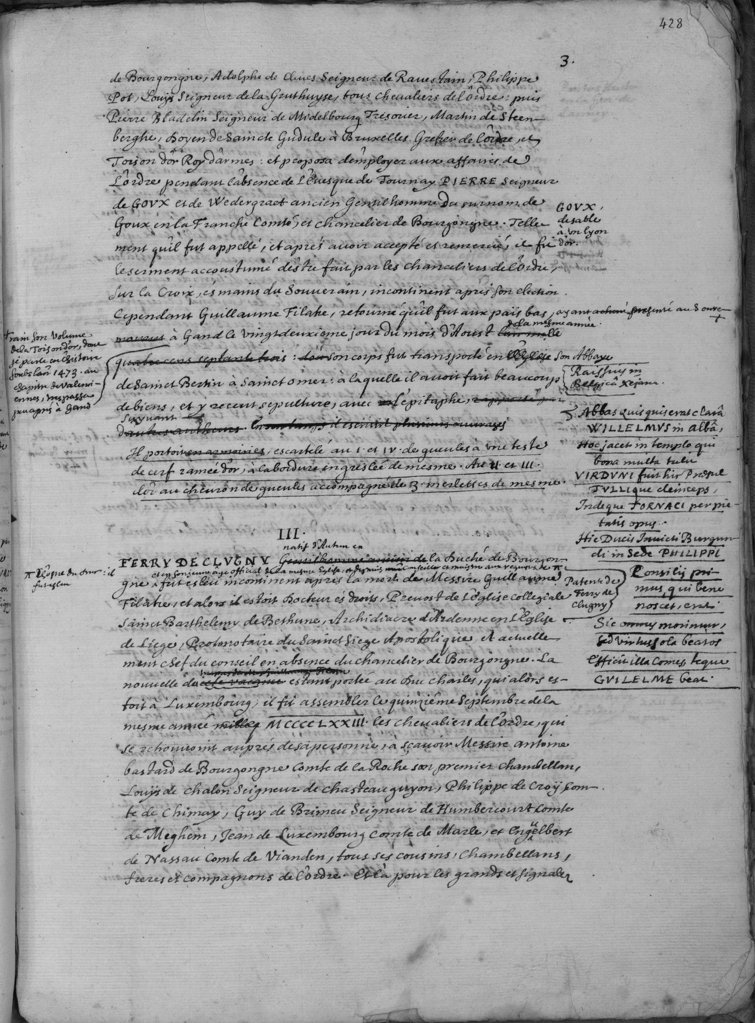 428
3.
de Bourgongne, Adolphe de Cleues Seigneur de Rauestain, Philippe
Pot, Louys Seigneur de la Gruthuyse, tous cheualiers de l'ordre; puis
Pierre Bladelin Seigneur de Midelbourg Tresorier, Martin de Steen-
berghe, Doyen de Saincte Gudule à Bruxelles Greffier de l'ordre, et
Toison d'or Roy d'armes: et proposa d'employer aux affaires de
L'ordre pendant l'absence de l'Euesque de Tournay PIERRE Seigneur
de GOUX et de Wedergraet ancien Gentilhomme du surnom de
Goux en la Franche Comté, et chancelier de Bourgongne. Telle-
ment qu'il fut appellé, et apres auoir accepté et remercié, il fit
le serment accoustumé d'estre fait par les Chanceliers de l'ordre,
sur la Croix, és mains du Souuerain, incontinent apres son election.
GOUX,
de sable
à un lyon
d'or.
Cependant Guillaume Filatre, retourné qu'il fut aux païs bas,
à Gand le vingtdeuxieme jour du mois d'Aoust
de la mesme année
quatre cens septante trois: son corps fut transporté en son Abbaye
de Sainct Bertin à Sainct Omer: à laquelle il auoit fait beaucoup
de biens, et y receut sepulture, auec l'epitaphe,
suyuant
Il portoit escartelé au I. et IV. de gueules à une teste
de cerf ramée d'or, à la bordure ingreslée de mesme. Au II et III.
d'or au cheuron de gueules accompagné de 3. merlettes de mesme.
Raissius in
Belgica
Abbas quisquis eras clarâ
WILLELMUS in albâ,
Hoc jacet in templo qui
bona multa tulit
VIRDUNI fuit hic Præsul
TULLIque deinceps,
Indeque TORNACI per pie-
tatis opus.
Hic Ducis Inuicti Burgun-
di in Sede PHILIPPI
Consilijs pri-
mus qui bene
noscet, erat.
Sic morimur,
sed virtus sola beatos
Efficit illa Comes teque
GUILELME beat.
III.
natif d'Autun en
FERRY DE CLUGNY Gentilhomme de la Duché de Bourgon-
gne fut esleu incontinent apres la mort de Messire Guillaume
Filatre, et alors il estoit Docteur es droits, Preuost de l'Eglise collegiale
Sainct Barthelemy de Bethune, Archidiacre d'Ardenne en l'Eglise
de Liege, Protonotaire du Sainct Siege Apostolique et actuelle-
ment chef du conseil en absence du chancelier de Bourgongne. La
nouvelle de estant portée au Duc Charles, qui alors es-
toit à Luxembourg, il fit assembler le quinzième Septembre de la
mesme année MCCCCLXXIII. les cheualiers de l'ordre, qui
se trouuoint aupres de sa personne, à sçauoir Messire Antoine
bastard de Bourgongne Comte de la Roche son premier chambellan,
Louys de Chalon Seigneur de Chasteauguyon, Philippe de Croÿ Com-
te de Chimay, Guy de Brimeu Seigneur de Humbercourt Comte
de Meghem, Jean de Luxembourg Comte de Marle, et Engelbert
de Nassau Comte de Vianden, tous ses cousins, Chambellans,
freres et compagnons de l'ordre. Et là pour les grands et signalez
Patente de
Ferry de
Clugny